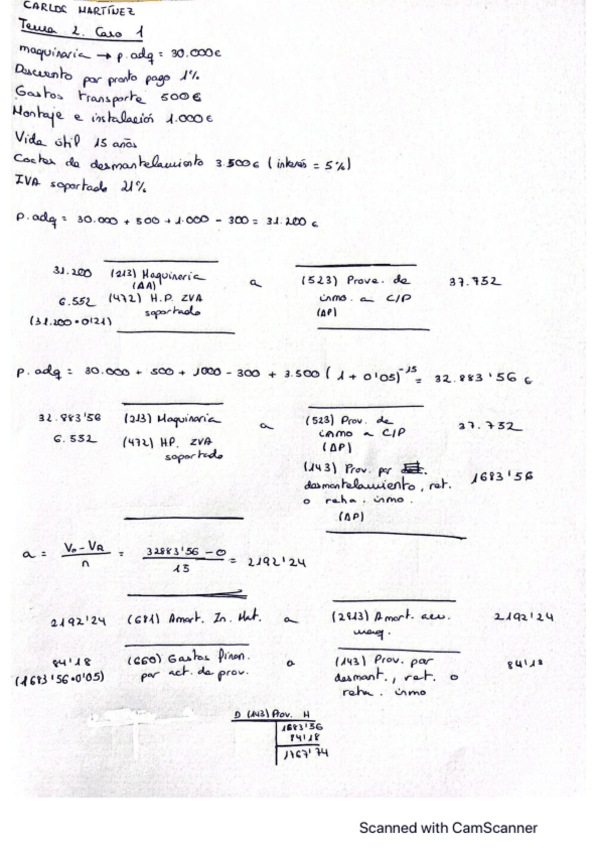 CARLOS MARTÍNEZ
Tema 2. Caso 1
maquinaria → p.adq = 30.000€
Descuento por pronto pago 1%
Gastos transporte 500€
Montaje e instalación 1.000€
Vida útil 15 años
Costes de desmantelamiento 3.500€ (interés = 5%)
IVA soportado 21%
P.adq = 30.000 + 500 + 1.000 - 300 = 31.200 €
31.200 (213) Maquinaria a (523) Prove. de 37.752
(AA) inmo. a C/P
6.552 (472) H.P. IVA (AP)
soportado
(31.200·0'21)
P.adq = 30.000 + 500 + 1000 - 300 + 3.500 (1 + 0'05)⁻¹⁵ = 32.883'56 €
32.883'56 (213) Maquinaria a (523) Prov. de 37.752
inmo a C/P
6.552 (472) HP. IVA (AP)
soportado
(143) Prov. por 1683'56
desmantelamiento, ret.
o reha. inmo.
(AP)
a = V₀-VR / n = 32883'56 - 0 / 15 = 2192'24
2192'24 (681) Amort. In. Mat. a (2813) Amort. acu. 2192'24
maq.
84'18 (660) Gastos finan. a (143) Prov. por 84'18
(1683'56·0'05) por act. de prov. desmant., ret. o
reha. inmo
D (143) Prov. H
1683'56
84'18
1767'74
Scanned with CamScanner